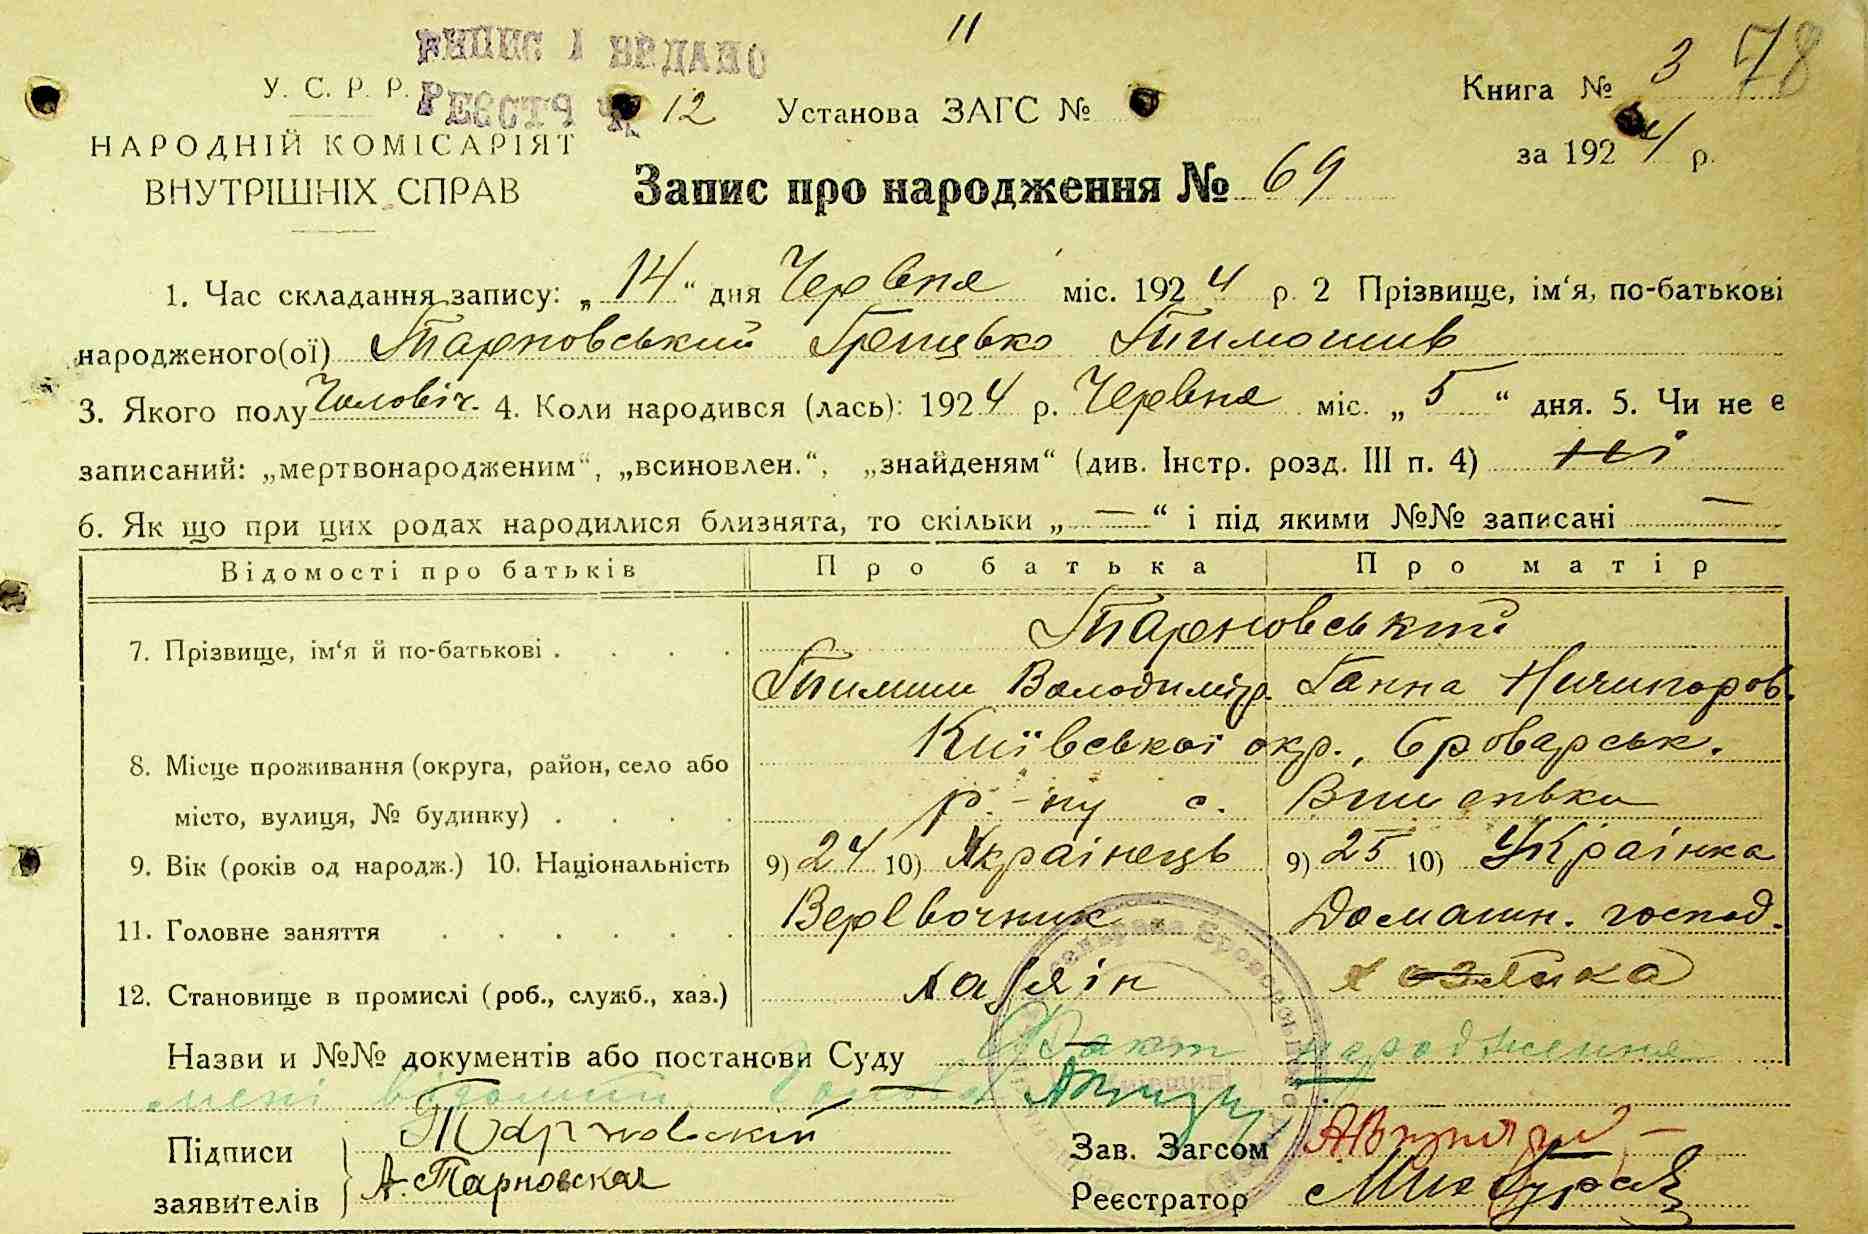 11
ВИПИС І ВИДАНО
У. С. Р. Р. РЕЄСТР Ч. 12 Установа ЗАГС № Книга № 3 78
НАРОДНІЙ КОМІСАРІЯТ за 1924 р.
ВНУТРІШНІХ СПРАВ Запис про народження № 69
1. Час складання запису: „14“ дня Червня міс. 1924 р. 2 Прізвище, ім‘я, по-батькові
народженого(ої) Тарновський Грицько Тимошив
3. Якого полу Чоловіч. 4. Коли народився (лась): 1924 р. Червня міс. „5“ дня. 5. Чи не є
записаний: „мертвонародженим“, „всиновлен.“, „знайденям“ (див. Інстр. розд. III п. 4) Ні
6. Як що при цих родах народилися близнята, то скільки „—“ і під якими №№ записані —
Відомості про батьків Про батька Про матір
Тарновський
7. Прізвище, ім‘я й по-батькові . . . .
Тимиш Володимір. Ганна Ничипоров.
Київської окр., Броварськ.
8. Місце проживання (округа, район, село або
р.-ну с. Вишеньки
місто, вулиця, № будинку) . . . .
9. Вік (років од народж.) 10. Національність 9) 24 10) Українець 9) 25 10) Українка
11. Головне заняття . . . . . . Верёвочник Домашн. господ.
12. Становище в промислі (роб., служб., хаз.) хазяін хозяйка
Назви и №№ документів або постанови Суду Факт народження
мені відомий. Голова
Підписи Тарновский Зав. Загсом
заявителів А. Тарновская Реєстратор